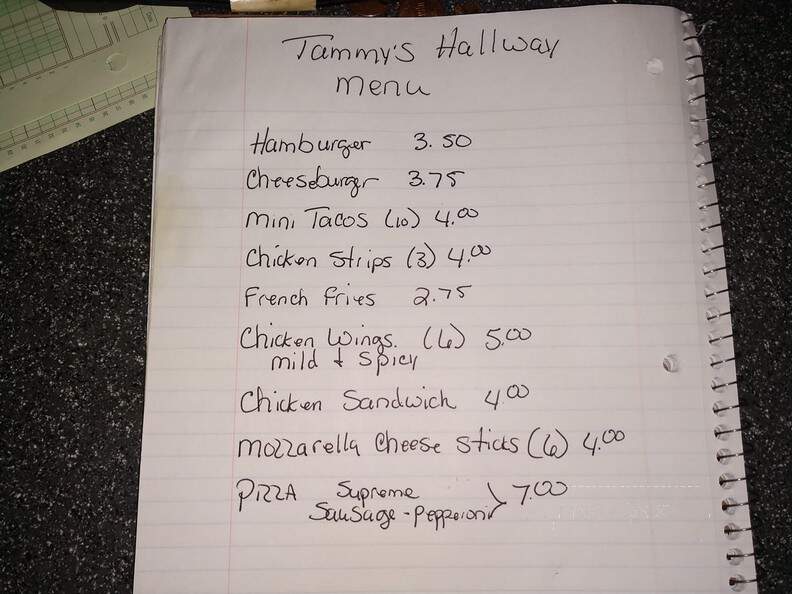 Tammy's Hallway
Menu
Hamburger 3.50
Cheeseburger 3.75
Mini Tacos (10) 4.00
Chicken Strips (3) 4.00
French Fries 2.75
Chicken Wings. (6) 5.00
mild & Spicy
Chicken Sandwich 4.00
Mozzarella Cheese Sticks (6) 4.00
PIZZA Supreme
Sausage - Pepperoni } 7.00